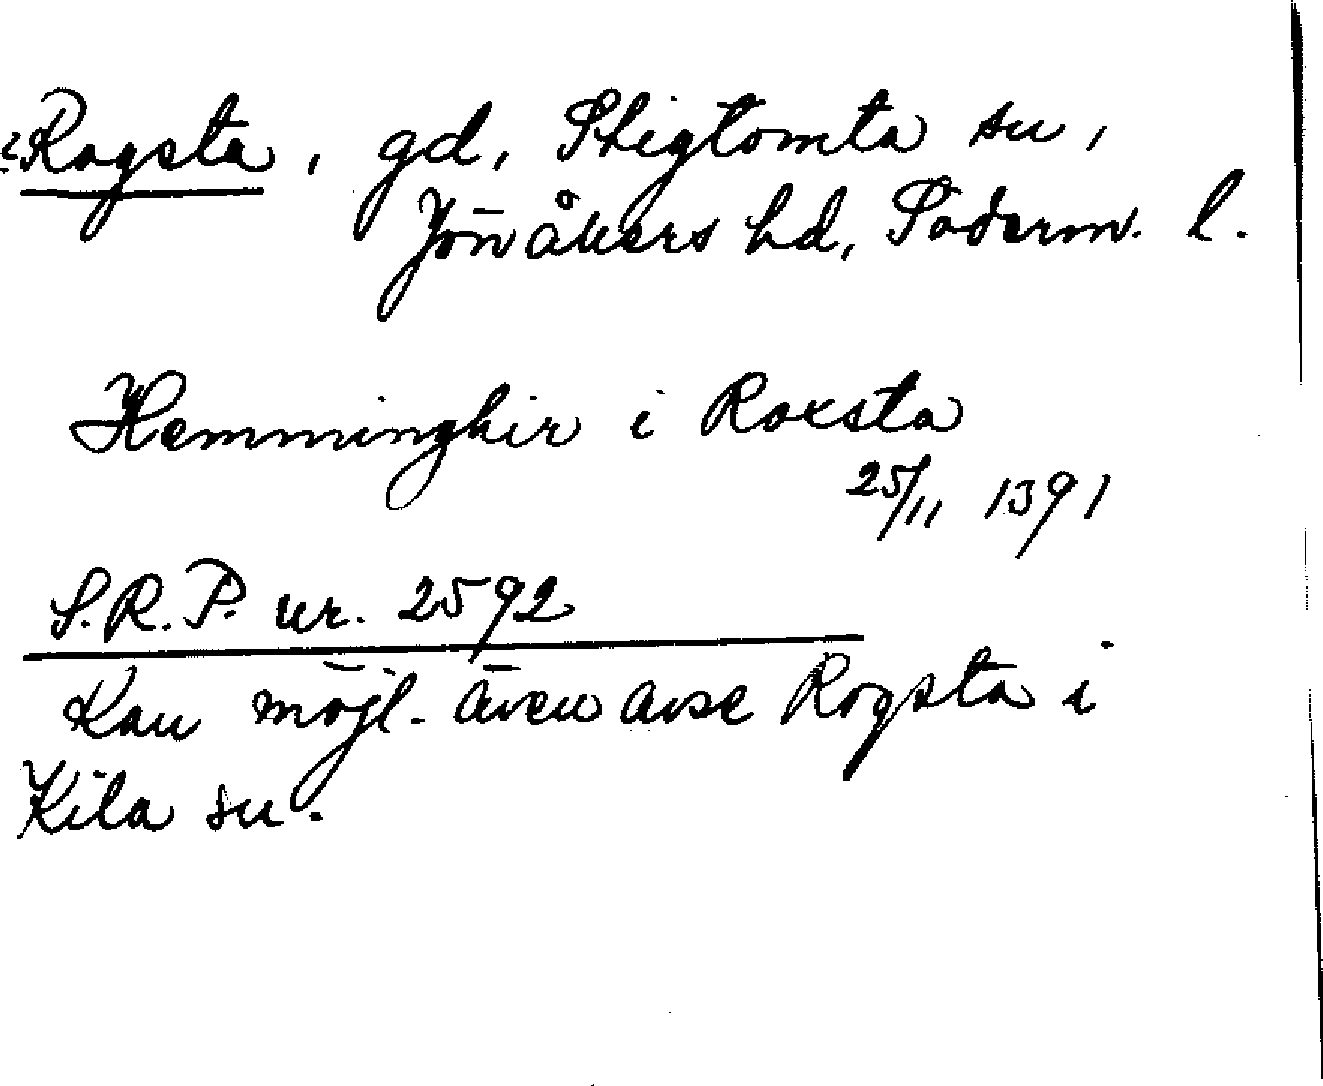 ?Rogsta, gd, Stigtomta sn,
Jönåkers hd, Söderm. l.
Hemminghir i Roxsta
25/11 1391
S.R.P. nr. 2592
Kan möjl. även avse Rogsta i
Kila sn.